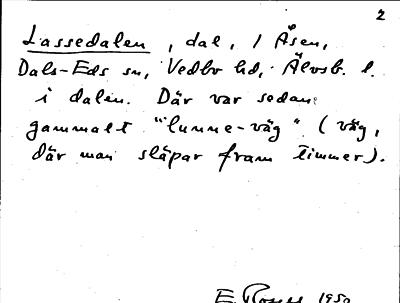 2
Lassedalen, dal, / Åsen,
Dals-Eds sn, Vedbo hd, Älvsb. l.
i dalen. Där var sedan
gammalt "lunne-väg" (väg,
där man släpar fram timmer).
E. 1950